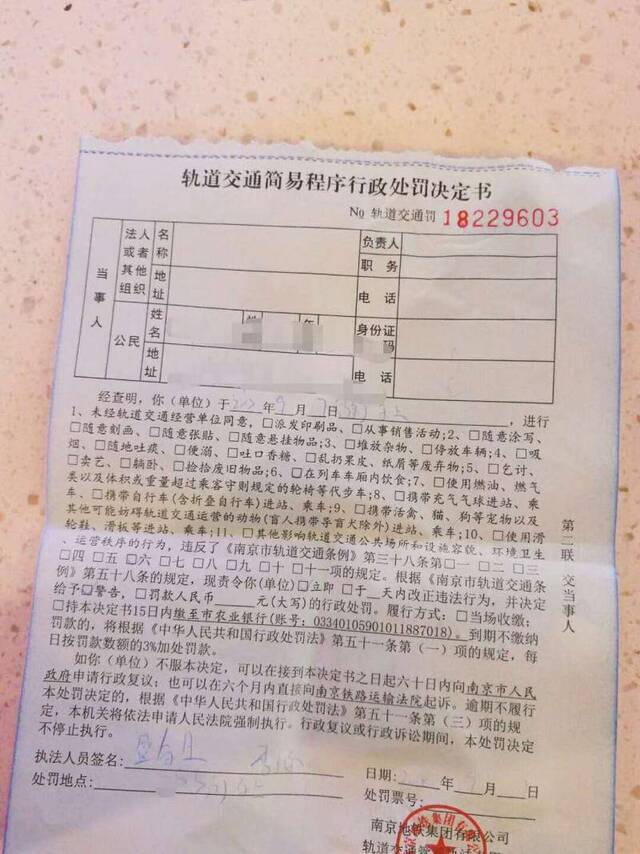 轨道交通简易程序行政处罚决定书
№ 轨道交通罚 18229603
当事人
法人或者其他组织
名称
负责人
职务
地址
电话
公民
姓名
身份证
码
地址
电话
经查明，你（单位）于 年9月7日，进行
1、未经轨道交通经营单位同意，□派发印刷品、□从事销售活动；2、□随意涂写、
□随意刻画、□随意张贴、□随意悬挂物品；3、□堆放杂物、□停放车辆；4、□吸
烟、□随地吐痰、□便溺、□吐口香糖、□乱扔果皮、纸屑等废弃物；5、□乞讨、
□卖艺、□躺卧、□捡拾废旧物品；6、□在列车车厢内饮食；7、□使用燃油、燃气
类以及体积或重量超过乘客守则规定的轮椅等代步车；8、□携带充气气球进站、乘
车、□携带自行车（含折叠自行车）进站、乘车；9、□携带活禽、猫、狗等宠物以及
其他可能妨碍轨道交通运营的动物（盲人携带导盲犬除外）进站、乘车；10、□使用滑
轮鞋、滑板等进站、乘车；11、□其他影响轨道交通公共场所和设施容貌、环境卫生
、运营秩序的行为，违反了《南京市轨道交通条例》第三十八条第□一□二□三
□四□五□六□七□八□九□十□十一项的规定。根据《南京市轨道交通条
例》第五十八条的规定，现责令你（单位）□立即□于 天内改正违法行为，并决定
给予□警告，□罚款人民币 元（大写）的行政处罚。履行方式：□当场收缴；
□持本决定书15日内缴至市农业银行（账号：03340105901011887018）。到期不缴纳
罚款的，将根据《中华人民共和国行政处罚法》第五十一条第（一）项的规定，每
日按罚款数额的3%加处罚款。
如你（单位）不服本决定，可以在接到本决定书之日起六十日内向南京市人民
政府申请行政复议；也可以在六个月内直接向南京铁路运输法院起诉。逾期不履行
本处罚决定的，根据《中华人民共和国行政处罚法》第五十一条第（三）项的规
定，本机关将依法申请人民法院强制执行。行政复议或行政诉讼期间，本处罚决定
不停止执行。
第二联 交当事人
执法人员签名：
日期： 年 月 日
处罚地点：
处罚票号：
南京地铁集团有限公司